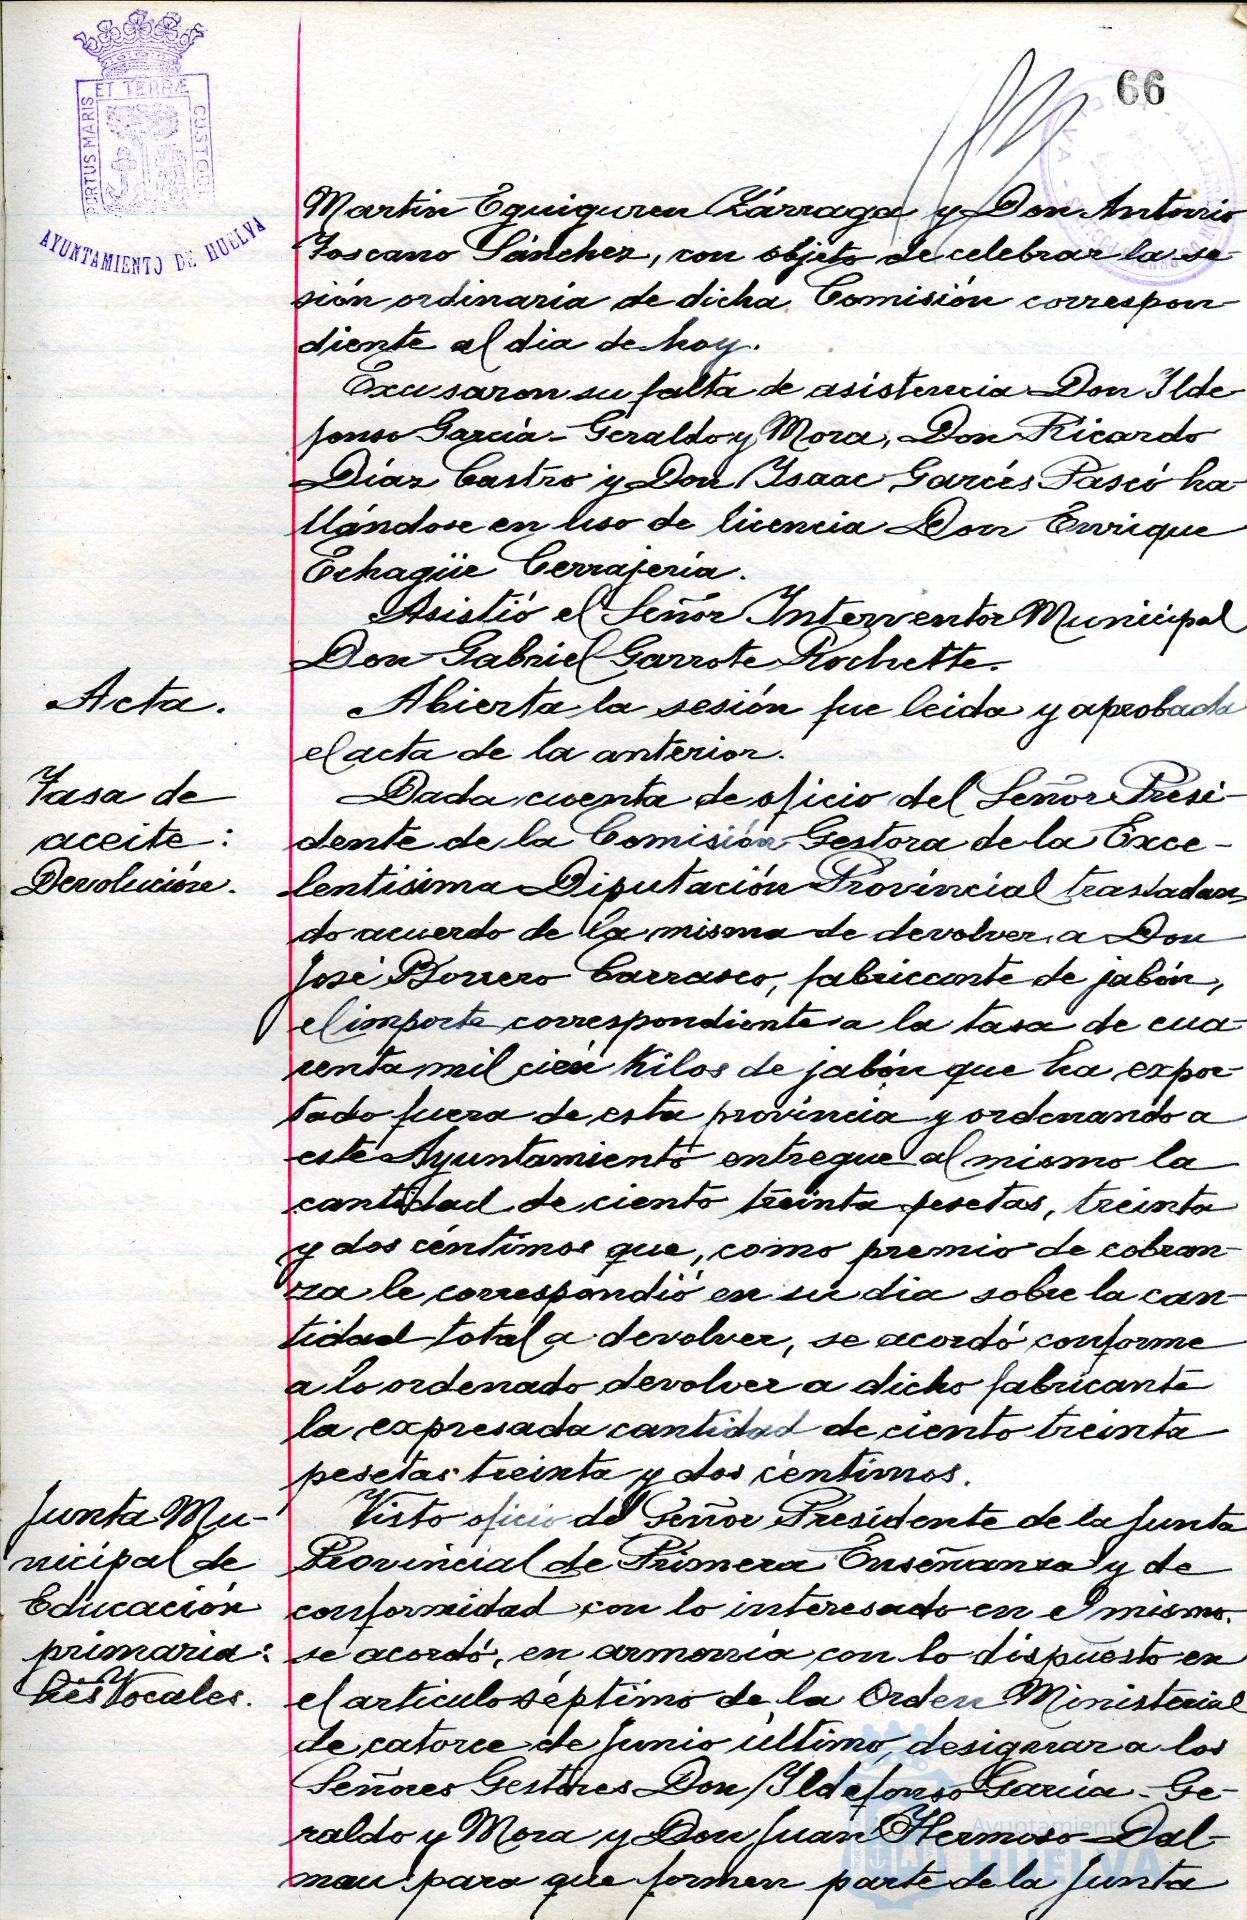 66
PORTUS MARIS ET TERRÆ CUSTODI
AYUNTAMIENTO DE HUELVA
Martin Eguiguren Zárraga y Don Antonio
Toscano Sánchez, con objeto de celebrar la se-
sión ordinaria de dicha Comisión correspon-
diente al dia de hoy.
Excusaron su falta de asistencia Don Ilde
fonso Garcia-Geraldo y Mora, Don Ricardo
Díaz Castro y Don Isaac Garcés Pascó ha-
llándose en uso de licencia Don Enrique
Echagüe Cerrajeria.
Asistió el Señor Interventor Municipal
Don Gabriel Garrote Rochette.
Acta.
Abierta la sesión fue leida y aprobada
el acta de la anterior.
Tasa de
aceite:
Devolución.
Dada cuenta de oficio del Señor Presi-
dente de la Comisión Gestora de la Exce-
lentisima Diputación Provincial trasladan-
do acuerdo de la misma de devolver a Don
José Borrero Carrasco, fabricante de jabón,
el importe correspondiente a la tasa de cua-
renta mil cien Kilos de jabón que ha expor-
tado fuera de esta provincia y ordenando a
este Ayuntamiento entregue al mismo la
cantidad de ciento treinta pesetas, treinta
y dos céntimos que, como premio de cobran-
za le correspondió en su dia sobre la can-
tidad total a devolver, se acordó conforme
a lo ordenado devolver a dicho fabricante
la expresada cantidad de ciento treinta
pesetas treinta y dos céntimos.
Junta Mu-
nicipal de
Educación
primaria:
Vocales.
Visto oficio del Señor Presidente de la Junta
Provincial de Primera Enseñanza y de
conformidad con lo interesado en el mismo.
se acordó, en armonía con lo dispuesto en
el articulo séptimo de la Orden Ministerial
de catorce de Junio último, designar a los
Señores Gestores Don Ildefonso Garcia-Ge-
raldo y Mora y Don Juan Hermoso Dal-
mau para que formen parte de la Junta
Ayuntamiento
HUELVA